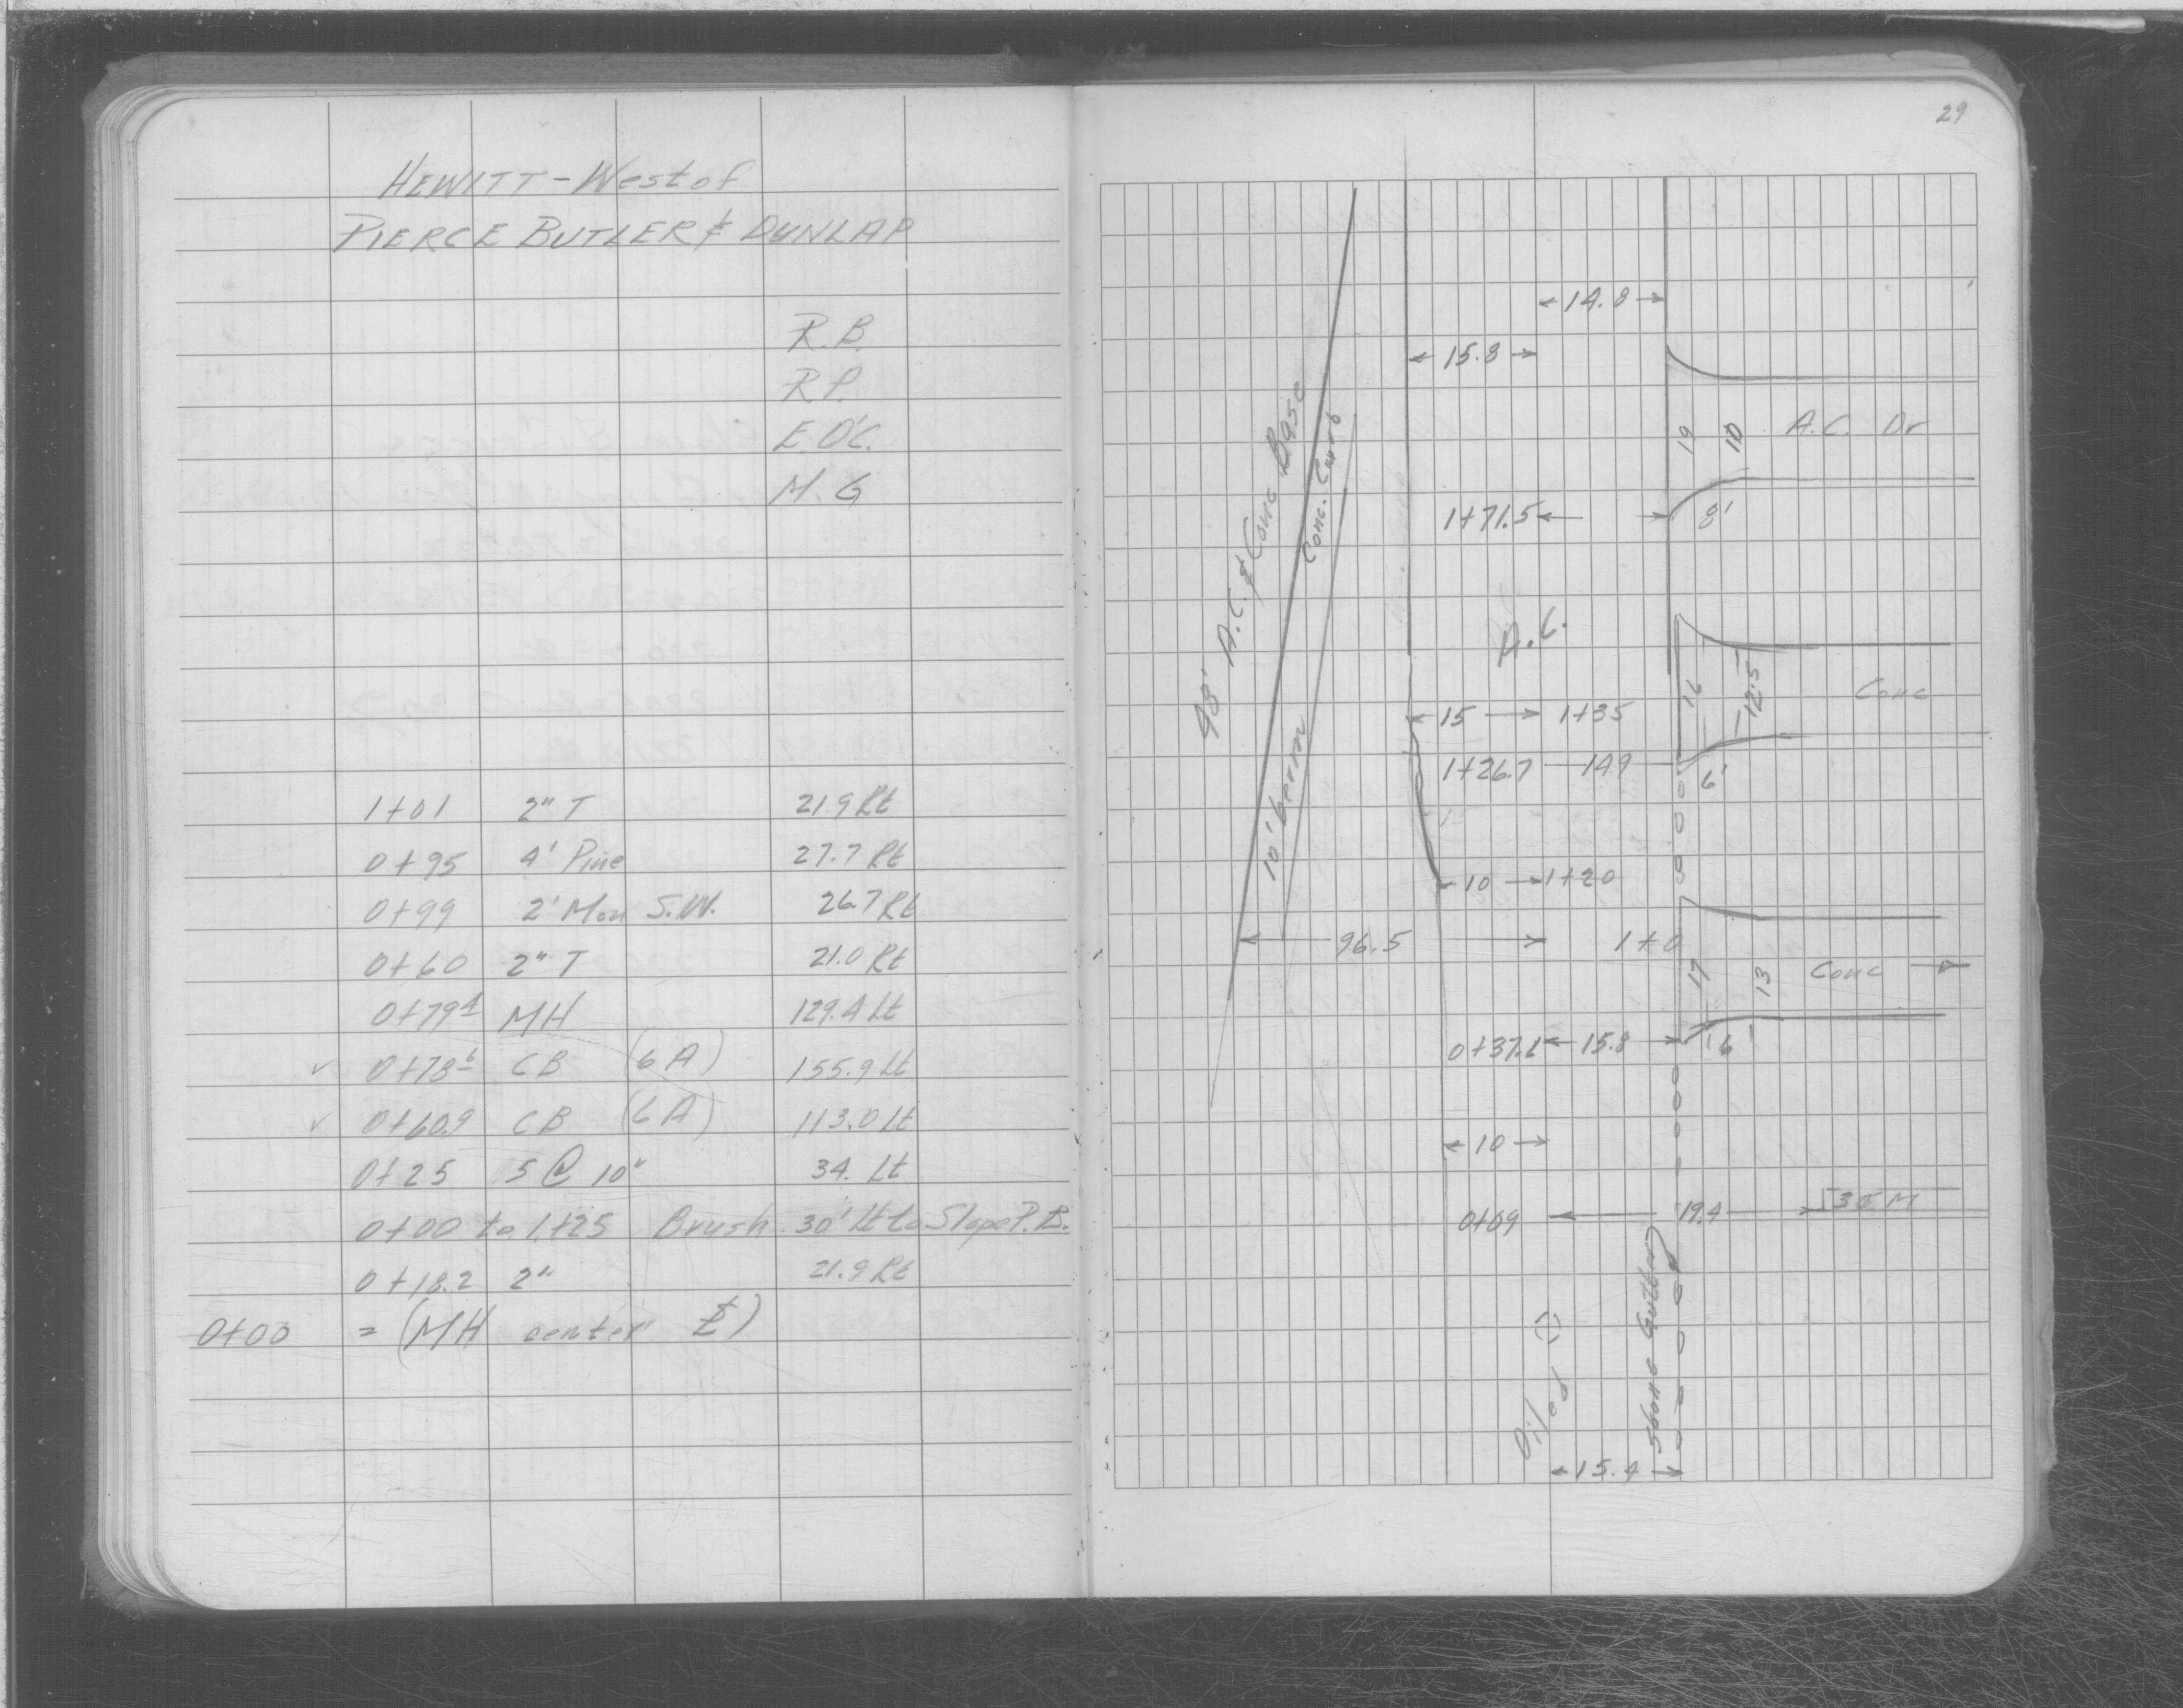 HEWITT - West of
PIERCE BUTLER & DUNLAP
R.B.
R.P.
E.O'C.
M.G
1+01 2" T 21.9 Rt
0+95 4' Pine 27.7 Rt
0+99 2' Mon S.W. 26.7 Rt
0+60 2" T 21.0 Rt
0+79⁴ MH 129.4 Lt
✓ 0+78⁶ CB (6A) 155.9 Lt
✓ 0+60.9 CB (6A) 113.0 Lt
0+25 5 @ 10" 34. Lt
0+00 to 1+25 Brush 30' Lt to Slope P.B.
0+18.2 2" 21.9 Rt
0+00 = (MH center ℄)
29
14.8
15.8
48' A.C. & Conc Base
Conc. Curb
19 10 A.C. Dr
1+71.5 8'
A.C.
10' berm
16 12.5 Conc
15 1+35
1+26.7 14.9 6'
10 1+20
96.5 1+0
17 13 Conc
0+37.1 15.8 6
10
0+09 19.4 35 M
Oiled
Stone Gutter
15.4